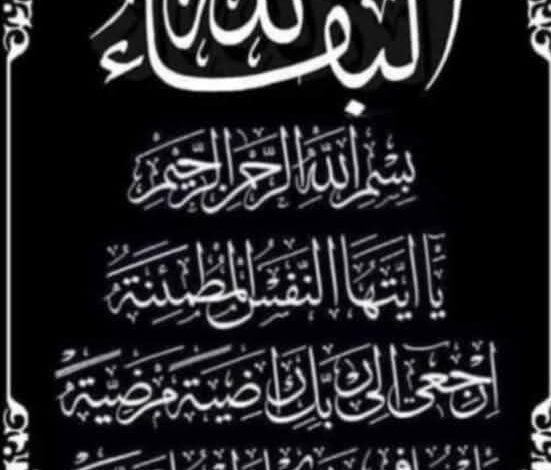 البقاء لله
بِسْمِ اللَّهِ الرَّحْمَنِ الرَّحِيمِ
يَا أَيَّتُهَا النَّفْسُ الْمُطْمَئِنَّةُ
ارْجِعِي إِلَى رَبِّكِ رَاضِيَةً مَرْضِيَّةً